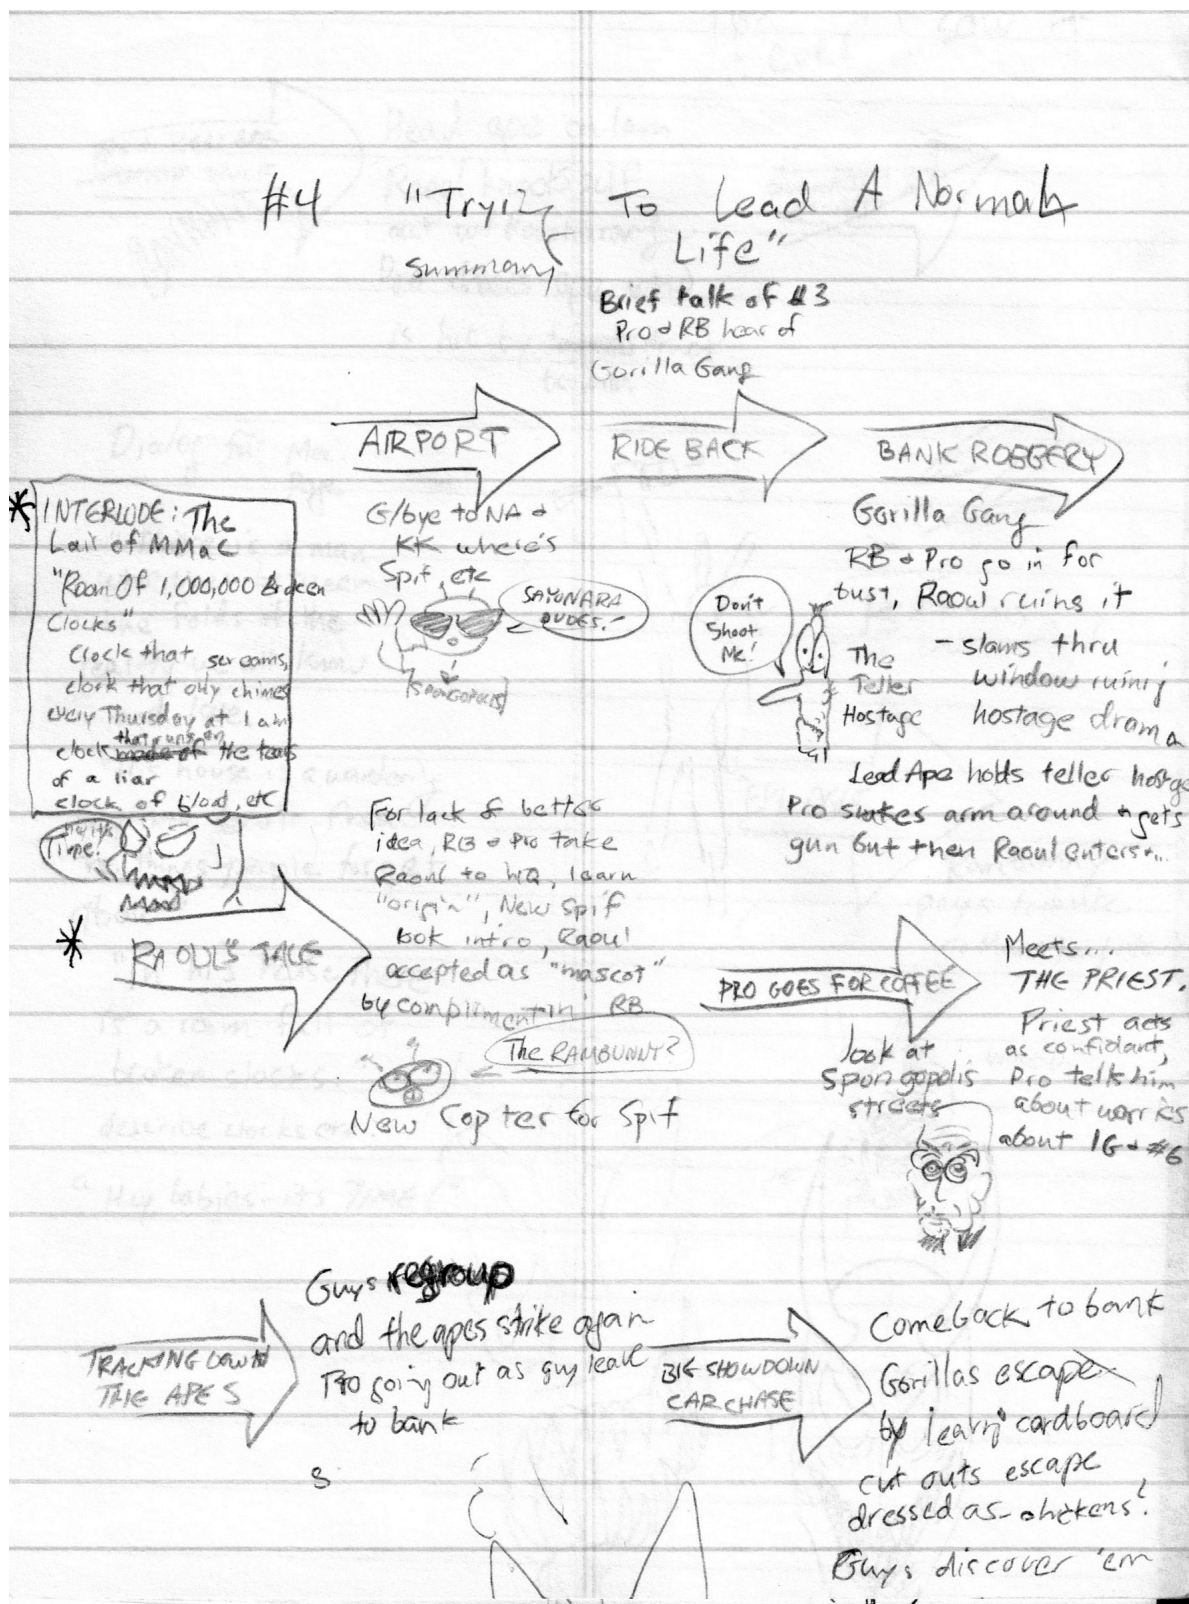 #4 "Trying To Lead A Normal
Life"
summary
Brief talk of #3
Pro & RB hear of
Gorilla Gang
AIRPORT
RIDE BACK
BANK ROBBERY
* INTERLUDE: The
Lair of MMaC
"Room Of 1,000,000 Broken
Clocks"
Clock that screams,
clock that only chimes
every Thursday at 1 am
that runs on
clock made of the tears
of a liar
clock of blood, etc
Time!
G/bye to NA &
KK where's
Spif, etc
SAYONARA
DUDES!
SPONGOPOLIS
Gorilla Gang
RB & Pro go in for
bust, Raoul ruins it
- slams thru
window ruining
hostage drama
Don't
Shoot
Me!
The
Teller
Hostage
Lead Ape holds teller hostage
Pro snakes arm around & gets
gun but then Raoul enters...
* RAOUL'S TALE
For lack of better
idea, RB & Pro take
Raoul to HQ, learn
"origin", New Spif
look intro, Raoul
accepted as "mascot"
by complimentin' RB
The RAMBUNNY?
New Copter for Spif
PRO GOES FOR COFFEE
look at
Spongopolis
streets
Meets...
THE PRIEST.
Priest acts
as confidant,
Pro tells him
about worries
about IG & #6
TRACKING DOWN
THE APES
Guys regroup
and the apes strike again
Pro going out as guy leave
to bank
S
BIG SHOWDOWN
CAR CHASE
Come back to bank
Gorillas escape
by leaving cardboard
cut outs escape
dressed as chickens!
Guys discover 'em